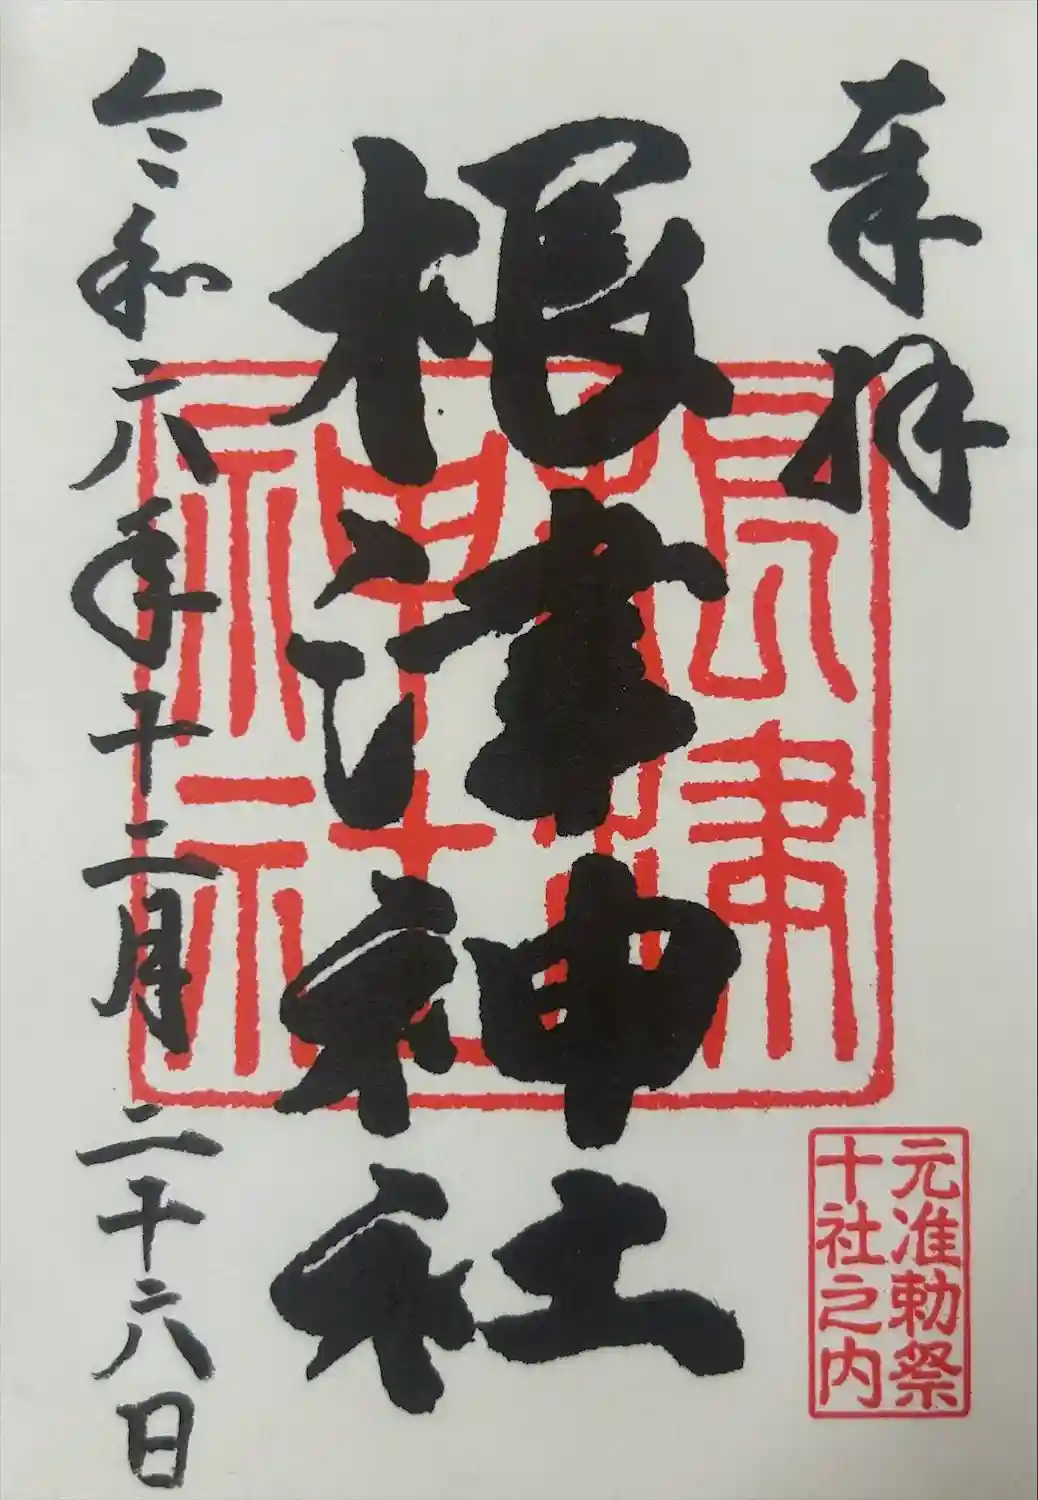 奉拝
元准勅祭
十社之内
根津神社
根津
神社
令和六年十二月二十六日